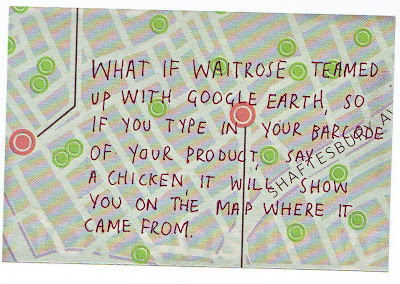 WHAT IF WAITROSE TEAMED
UP WITH GOOGLE EARTH, SO
IF YOU TYPE IN YOUR BARCODE
OF YOUR PRODUCT, SAY
A CHICKEN, IT WILL SHOW
YOU ON THE MAP WHERE IT
CAME FROM.
SHAFTESBURY AV